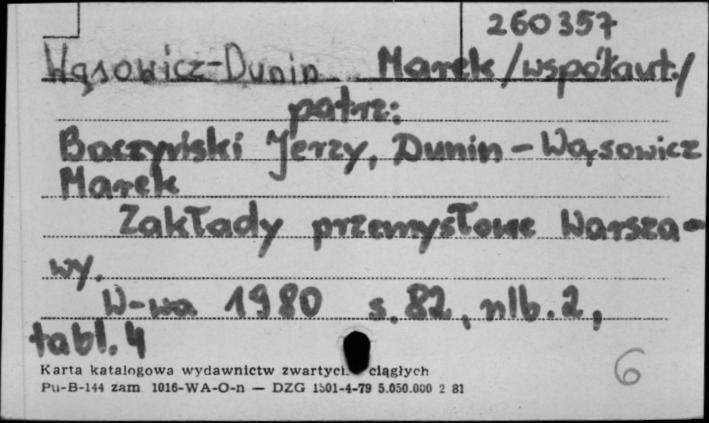 260357
Wąsowicz-Dunin Marek /współaut./
patrz:
Baczyński Jerzy, Dunin-Wąsowicz
Marek
Zakłady przemysłowe Warsza-
wy.
W-wa 1980 s. 82, nlb. 2,
tabl. 4
6
Karta katalogowa wydawnictw zwartych ciągłych
Pu-B-144 zam. 1016-WA-O-n — DZG 1501-4-79 5.050.000 2 81